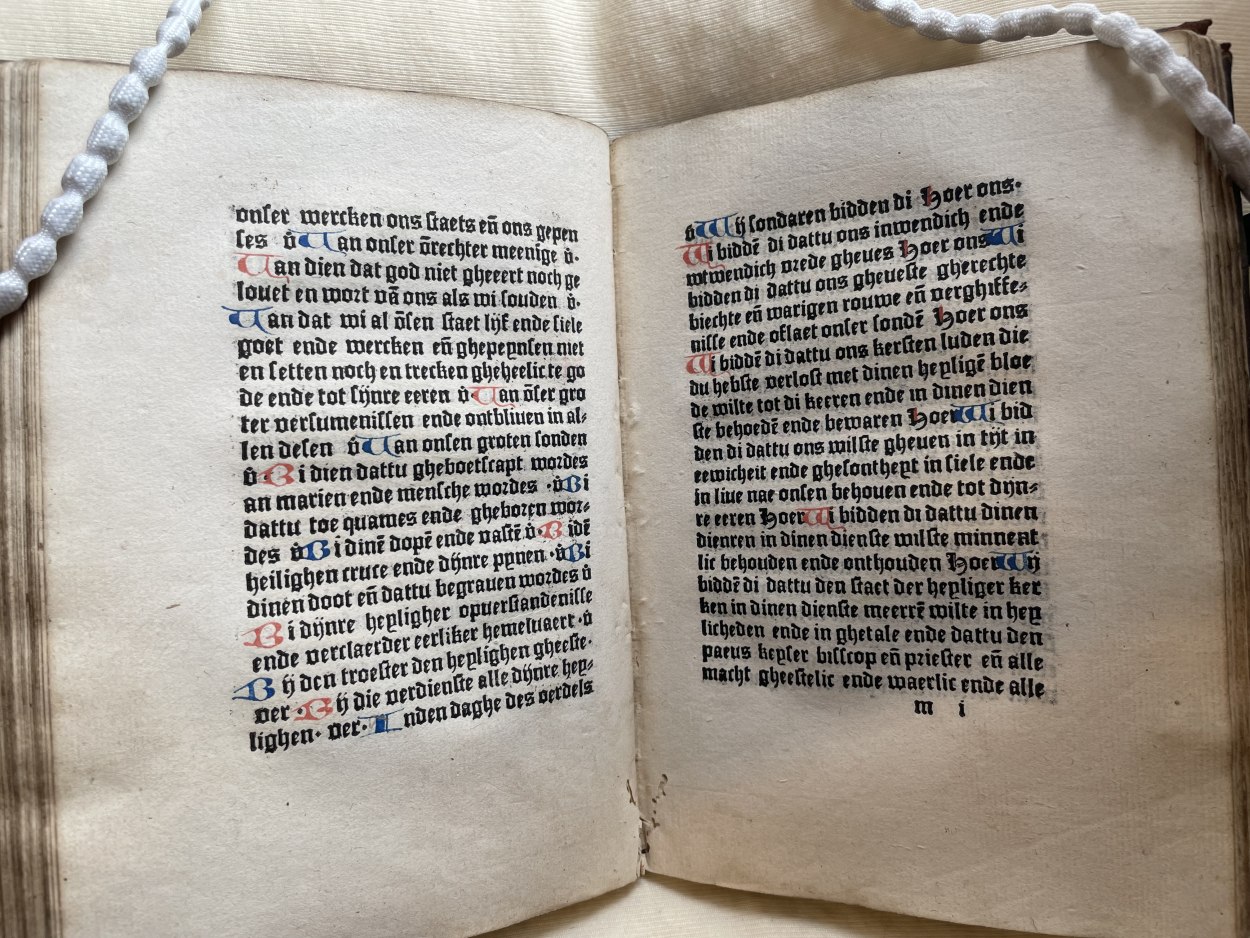 onser wercken ons staets en̄ ons gepen
ses v̄ Uan onser ōrechter meenīge v̄·
Uan dien dat god niet gheeert noch ge
louet en wort vā ons als wi souden v̄·
Uan dat wi al ōsen staet lijf ende siele
goet ende wercken en̄ ghepeynsen niet
en setten noch en trecken gheheelic te go
de ende tot sijnre eeren v̄ Uan ōser gro
ter versumenissen ende ontbliuen in al⸗
len desen v̄ Uan onsen groten sonden
v̄ Bi dien dattu gheboetscapt wordes
an marien ende mensche wordes ·v̄ Bi
dattu toe quames ende gheboren wor⸗
des v̄ Bi dinē dopē ende vastē v̄· Bi dē
heilighen cruce ende dijnre pynen ·v̄ Bi
dinen doot en̄ dattu begrauen wordes v̄
Bi dijnre heyligher opuerstandenisse
ende verclaerder eerliker hemeluaert ·v̄
Bij den troester den heylighen gheeste·
ver · Bij die verdienste alle dijnre hey⸗
lighen· ver· Inden daghe des oerdels
v̄ Wij sondaren bidden di Hoer ons·
Wi biddē di dattu ons inwendich ende
wtwendich vrede gheues Hoer ons Wi
bidden di dattu ons gheueste gherechte
biechte en̄ warigen rouwe en̄ verghiffe⸗
nisse ende oflaet onser sondē Hoer ons
Wi biddē di dattu ons kersten luden die
du hebste verlost met dinen heyligē bloe
de wilte tot di keeren ende in dinen dien
ste behoedē ende bewaren Hoer Wi bid
den di dattu ons wilste gheuen in tijt in
eewicheit ende ghesontheyt in siele ende
in liue nae onsen behouen ende tot dyn⸗
re eeren Hoer Wi bidden di dattu dinen
dienren in dinen dienste wilste minnent
lic behouden ende onthouden Hoer Wij
biddē di dattu den staet der heyliger ker
ken in dinen dienste meerrē wilte in hey
licheden ende in ghetale ende dattu den
paeus keyser bisscop en̄ priester en̄ alle
macht gheestelic ende waerlic ende alle
m i